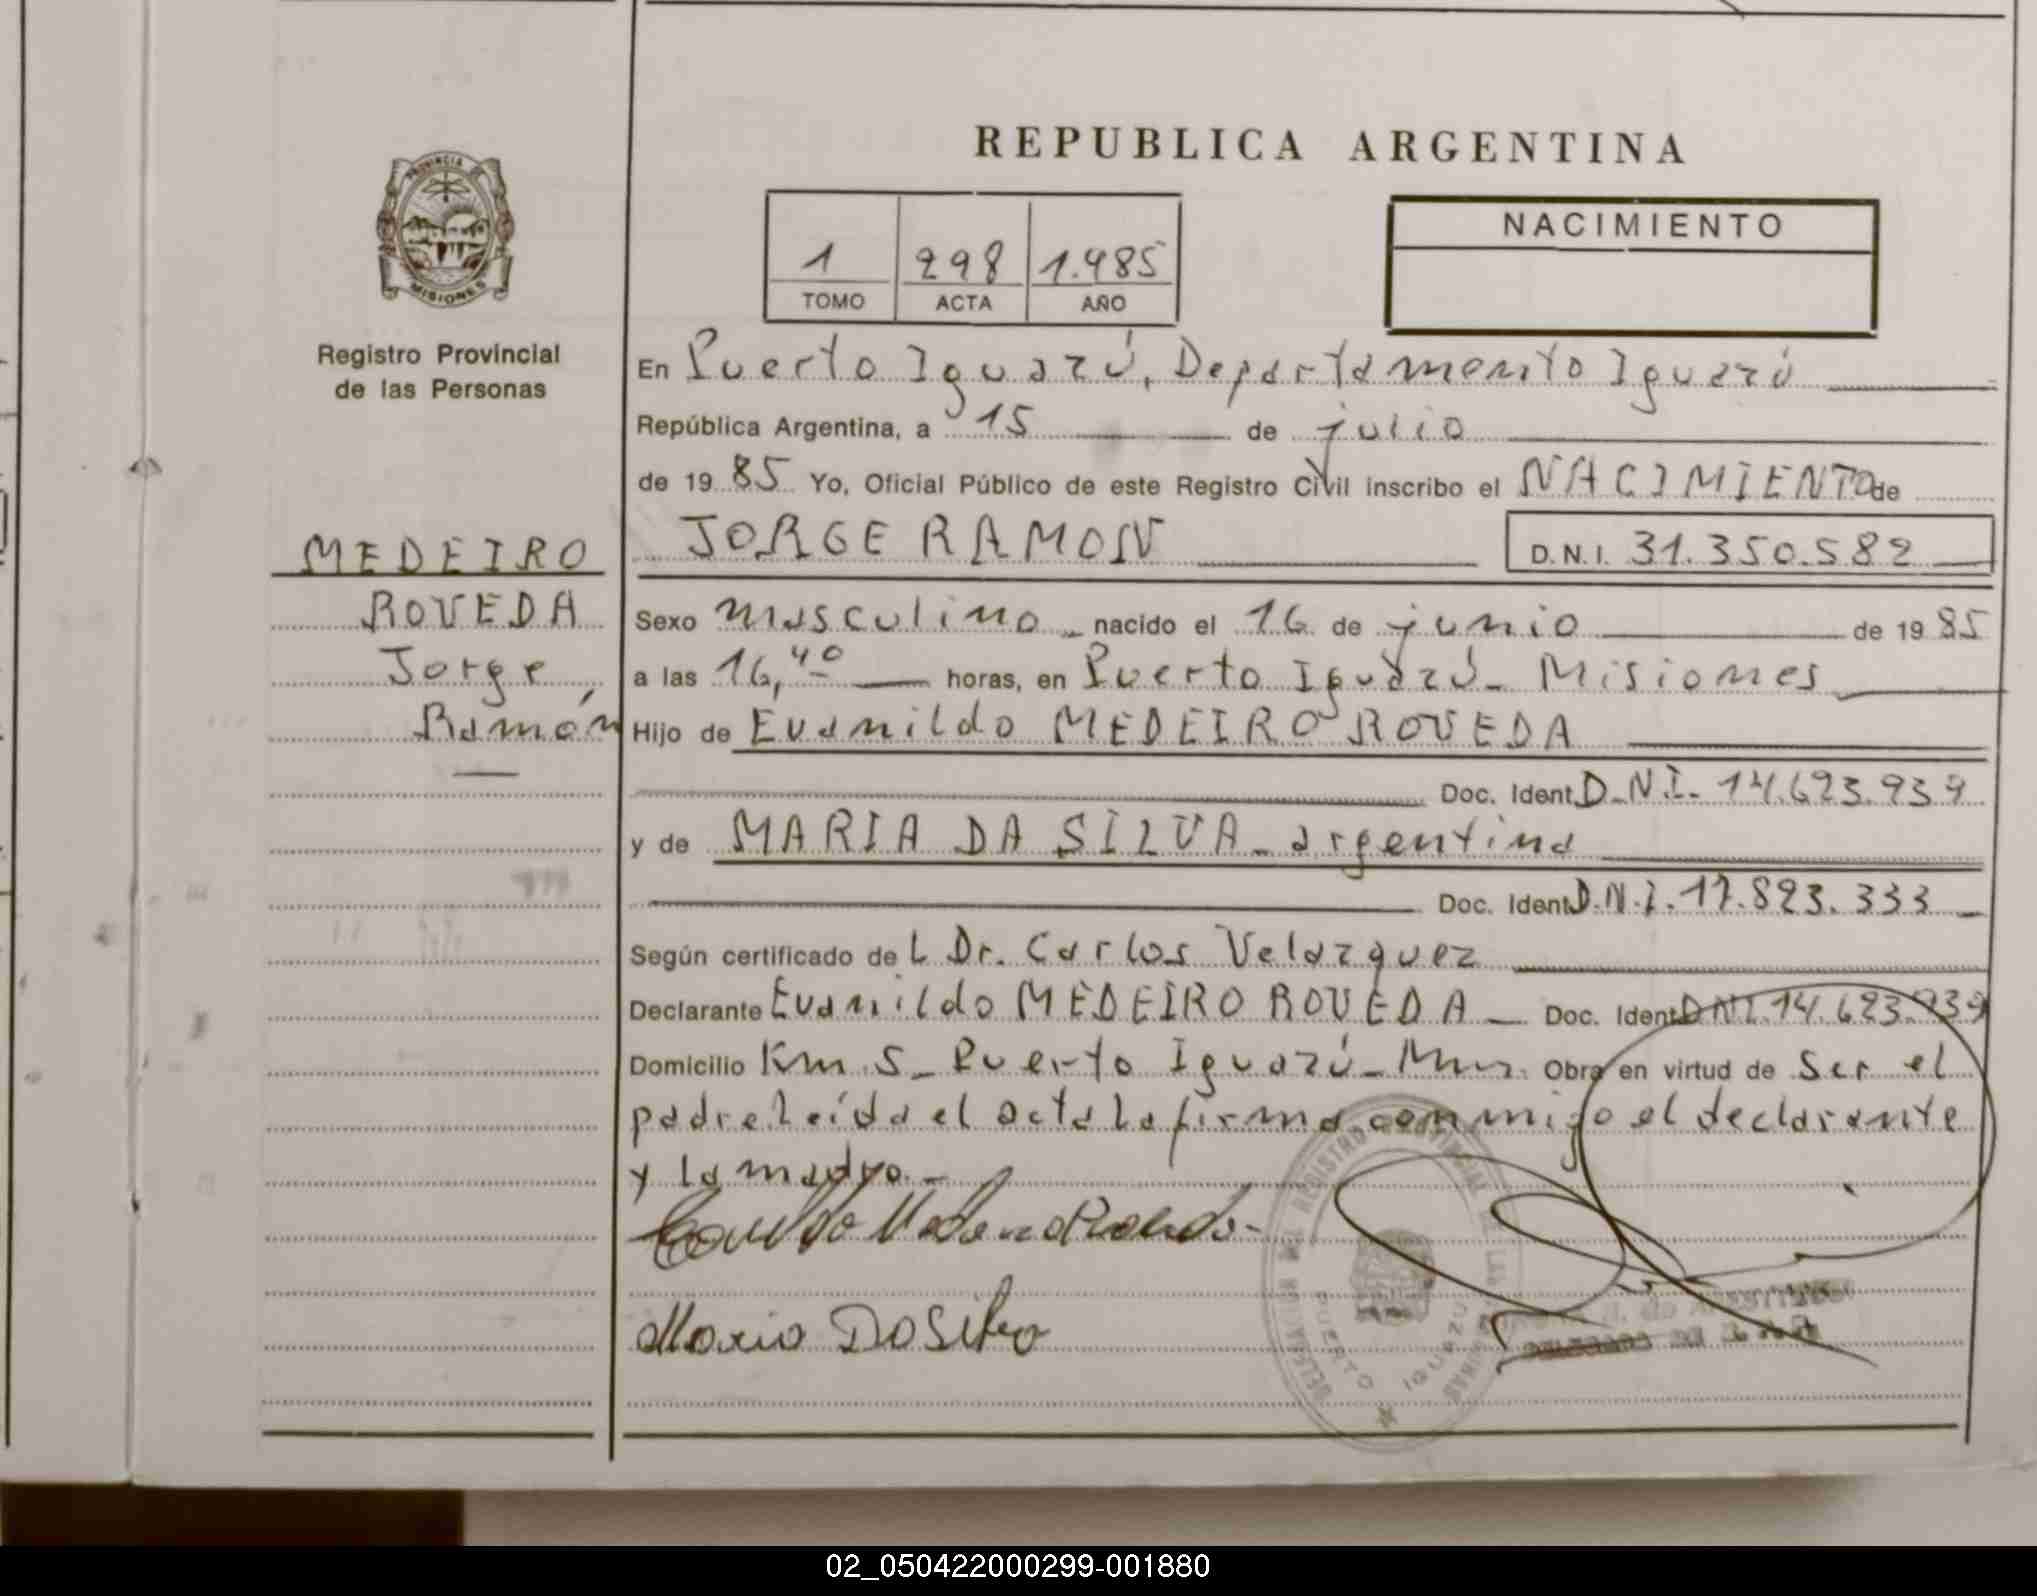 REPUBLICA ARGENTINA
PROVINCIA DE
MISIONES
Registro Provincial
de las Personas
1 298 1.985
TOMO ACTA AÑO
NACIMIENTO
En Puerto Iguazú, Departamento Iguazú
República Argentina, a 15 de julio
de 1985 Yo, Oficial Público de este Registro Civil inscribo el NACIMIENTO de
JORGE RAMON D.N.I. 31.350.582
MEDEIRO
ROVEDA
Jorge
Ramón
Sexo masculino nacido el 16 de junio de 1985
a las 16,40 horas, en Puerto Iguazú - Misiones
Hijo de Evanildo MEDEIRO ROVEDA
Doc. Ident D.N.I. 14.623.939
y de MARIA DA SILVA - argentina
Doc. Ident D.N.I. 17.823.333
Según certificado de L Dr. Carlos Velazquez
Declarante Evanildo MEDEIRO ROVEDA - Doc. Ident DNI.14.623.939
Domicilio Km 5 - Puerto Iguazú - Mnes. Obra en virtud de ser el
padre. Leída el acta la firma conmigo el declarante
y la madre. -
Maria Da Silva
DELEGACION DEL REGISTRO PROVINCIAL DE LAS PERSONAS
PUERTO IGUAZU
02_050422000299-001880